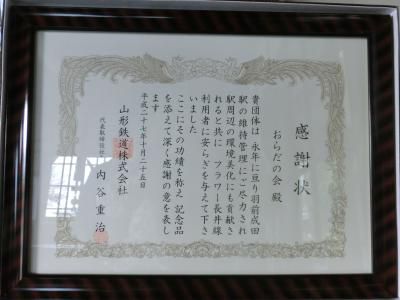 感謝状
おらだの会 殿
貴団体は 永年に亘り羽前成田
駅の維持管理にご尽力され
駅周辺の環境美化にも貢献さ
れると共に フラワー長井線
利用者に安らぎを与えて下さ
いました
ここにその功績を称え 記念品
を添えて深く感謝の意を表し
ます
平成二十七年十月二十五日
山形鉄道株式会社
代表取締役社長 内谷重治